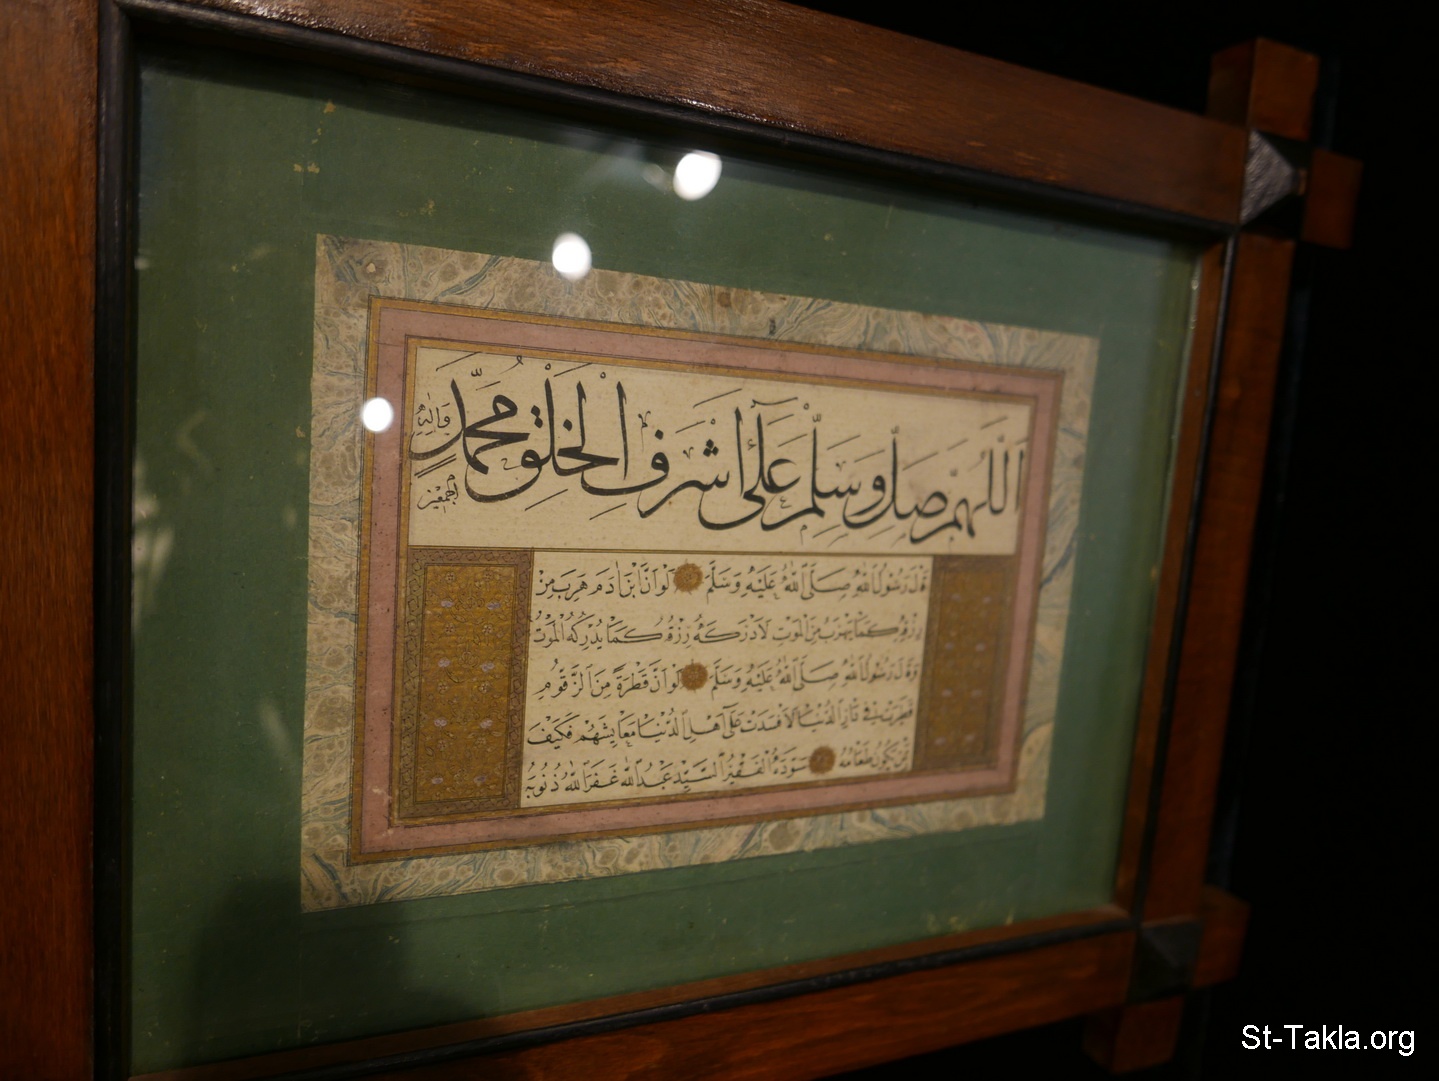 اللهم صل وسلم على اشرف الخلق محمد واله
اجمعين
قال رسول الله صلى الله عليه وسلم لو ان ابن ادم هرب من
رزقه كما يهرب من الموت لادركه رزقه كما يدركه الموت
وقال رسول الله صلى الله عليه وسلم لو ان قطرة من الزقوم
قطرت في دار الدنيا لافسدت على اهل الدنيا معايشهم فكيف
بمن يكون طعامه سوده الفقير السيد عبد الله غفر الله ذنوبه
St-Takla.org